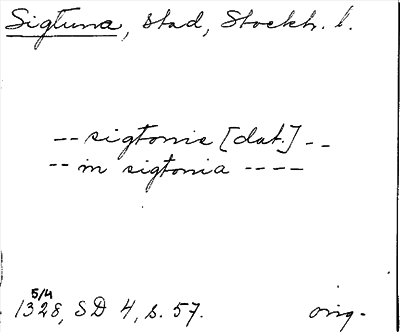 Sigtuna, stad, Stockh. l.
-- sigtonie [dat.] --
-- in sigtonia ----
5/4
1328, SD 4, s. 57. orig.